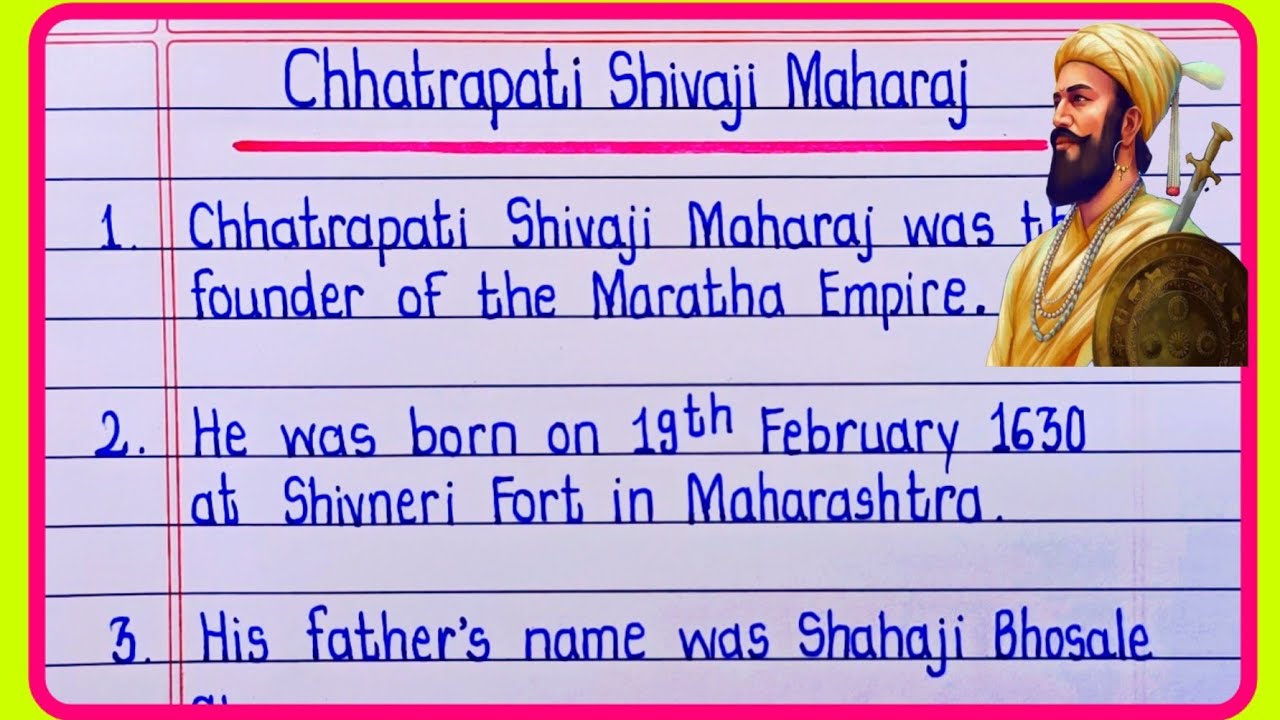 Chhatrapati Shivaji Maharaj
1. Chhatrapati Shivaji Maharaj was
founder of the Maratha Empire.
2. He was born on 19th February 1630
at Shivneri Fort in Maharashtra.
3. His father's name was Shahaji Bhosale